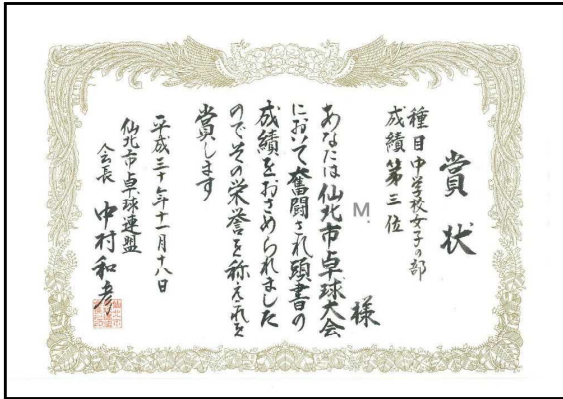 賞状
種目 中学校女子の部
成績 第三位
M. 様
あなたは仙北市卓球大会
において奮闘され頭書の
成績をおさめられました
のでその栄誉を称えこれを
賞します
平成三十年十一月十八日
仙北市卓球連盟
会長 中村和彦